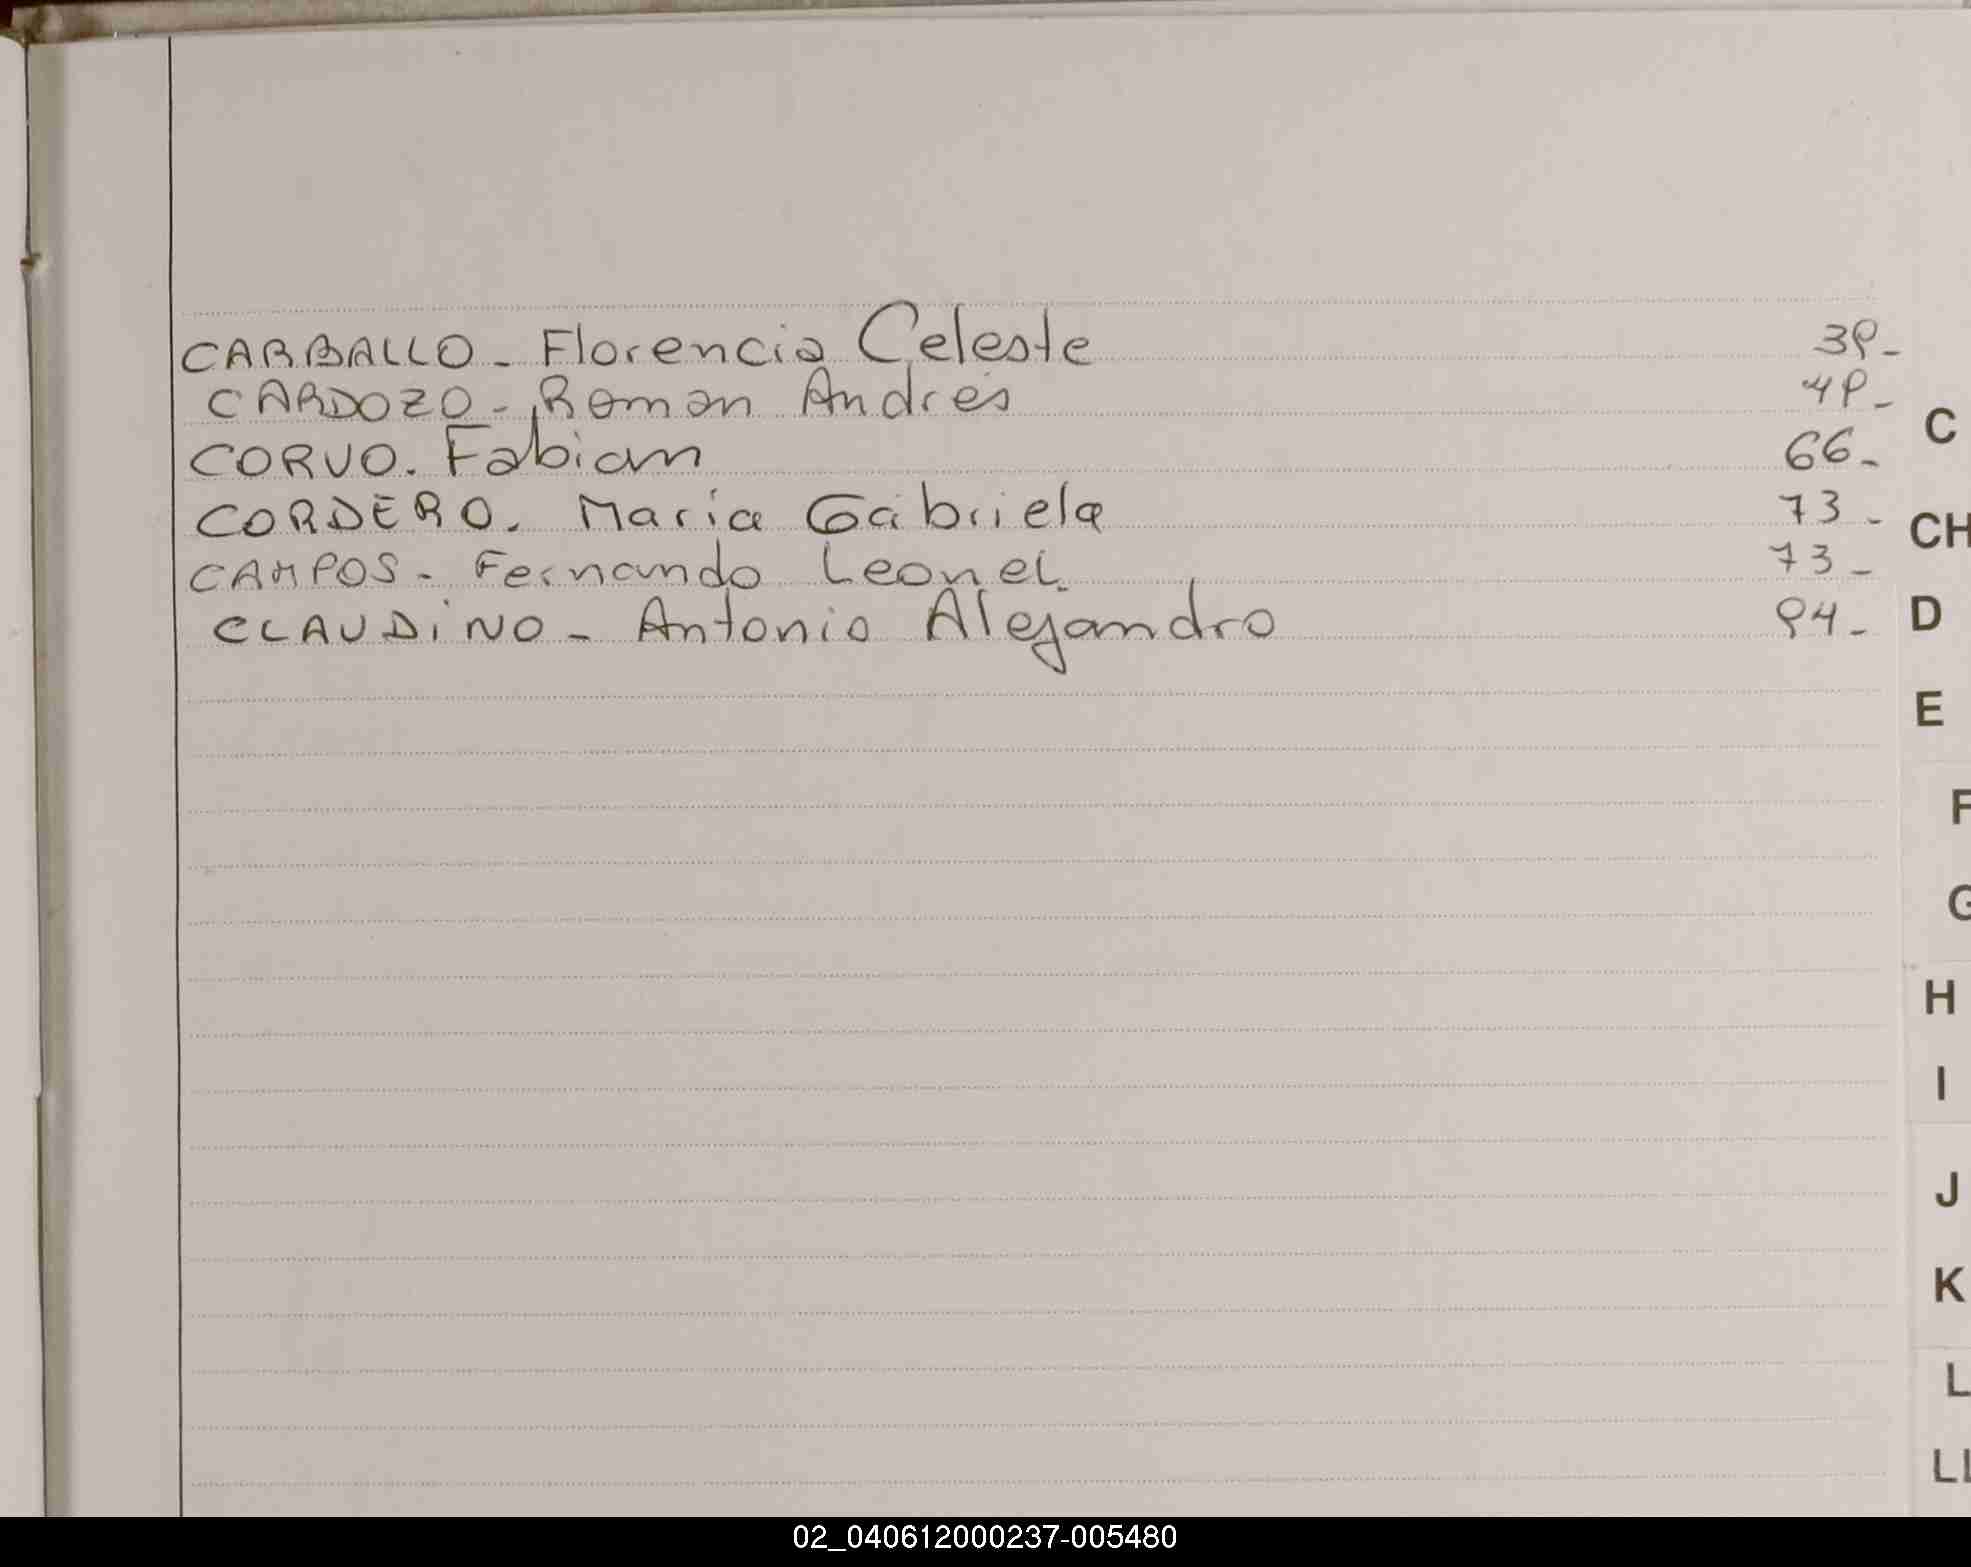 CARBALLO - Florencia Celeste 39-
CARDOZO - Roman Andrés 49-
CORVO. Fabian 66-
CORDERO. Maria Gabriela 73-
CAMPOS - Fernando Leonel 73-
CLAUDiNO - Antonio Alejandro 94-
C
CH
D
E
F
G
H
I
J
K
L
LL
02_040612000237-005480